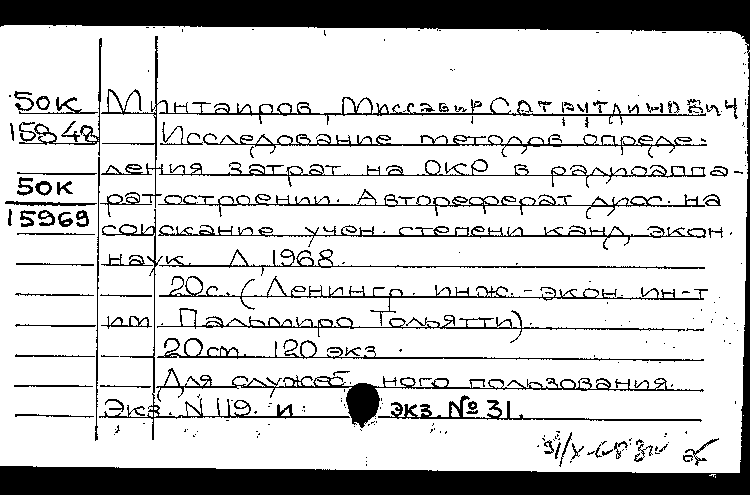 50К Минтаиров, Миссавир Сатрутдинович
15848 Исследование методов опреде-
ления затрат на ОКР в радиоаппа-
50К
ратостроении. Автореферат дисс. на
15969
соискание учен. степени канд. экон.
наук. Л., 1968.
20с. (Ленингр. инж.-экон. ин-т
им. Пальмиро Тольятти).
20см. 120 экз.
Для служеб ного пользования.
Экз. N 119. и экз. № 31.